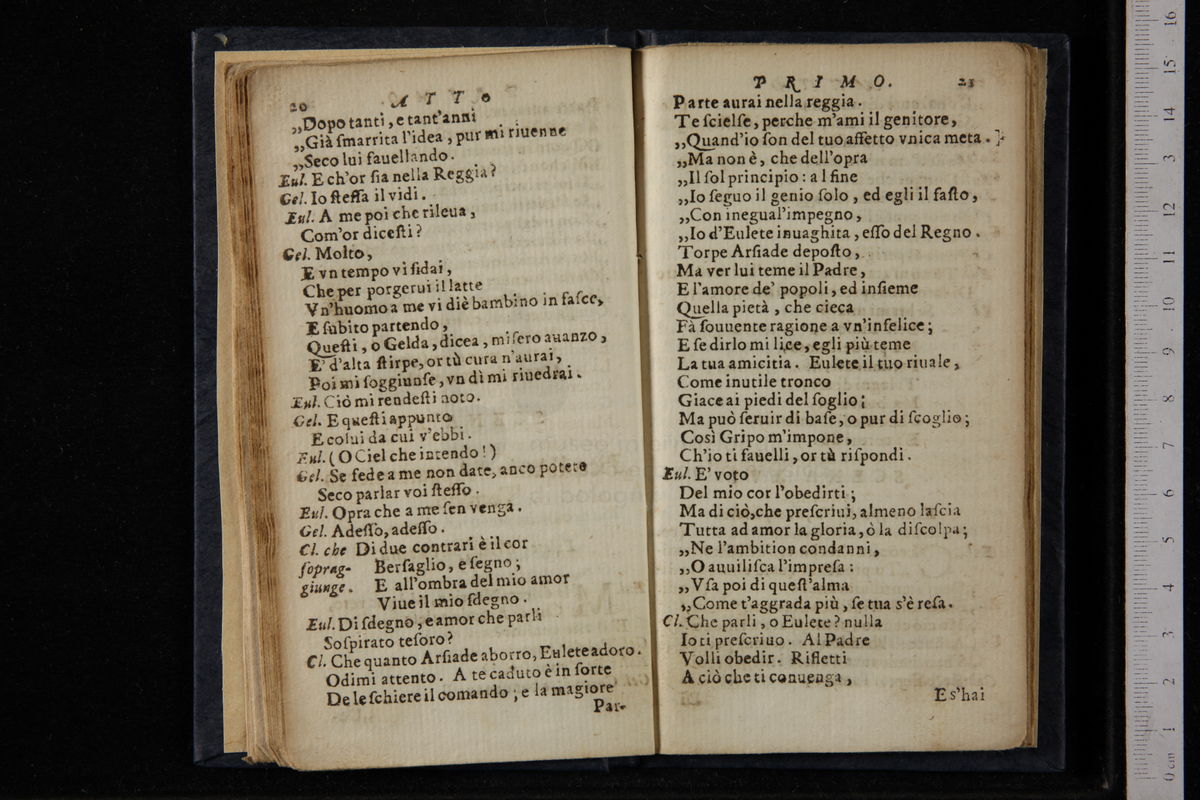 20 ATTO
„Dopo tanti, e tant'anni
„Già ſmarrita l'idea, pur mi riuenne
„Seco lui fauellando.
Eul. E ch'or ſia nella Reggia?
Gel. Io ſteſſa il vidi.
Eul. A me poi che rileua,
Com'or diceſti?
Gel. Molto,
E vn tempo vi fidai,
Che per porgerui il latte
Vn'huomo a me vi diè bambino in faſce,
E ſubito partendo,
Queſti, o Gelda, dicea, miſero auanzo,
E' d'alta ſtirpe, or tù cura n'aurai,
Poi mi ſoggiunſe, vn dì mi riuedrai.
Eul. Ciò mi rendeſti noto.
Gel. E queſti appunto
E colui da cui v'ebbi.
Eul. (O Ciel che intendo!)
Gel. Se fede a me non date, anco potete
Seco parlar voi ſteſſo.
Eul. Opra che a me ſen venga.
Gel. Adeſſo, adeſſo.
Cl. che Di due contrari è il cor
ſoprag- Berſaglio, e ſegno;
giunge. E all'ombra del mio amor
Viue il mio ſdegno.
Eul. Di ſdegno, e amor che parli
Soſpirato teſoro?
Cl. Che quanto Arſiade aborro, Eulete adoro.
Odimi attento. A te caduto è in ſorte
De le ſchiere il comando; e la magiore
Par-
PRIMO. 21
Parte aurai nella reggia.
Te ſcielſe, perche m'ami il genitore,
„Quand'io ſon del tuo affetto vnica meta.
„Ma non è, che dell'opra
„Il ſol principio: a l fine
„Io ſeguo il genio ſolo, ed egli il faſto,
„Con inegual'impegno,
„Io d'Eulete inuaghita, eſſo del Regno.
Torpe Arſiade depoſto,
Ma ver lui teme il Padre,
E l'amore de' popoli, ed inſieme
Quella pietà, che cieca
Fà ſouuente ragione a vn'infelice;
E ſe dirlo mi lice, egli più teme
La tua amicitia. Eulete il tuo riuale,
Come inutile tronco
Giace ai piedi del ſoglio;
Ma può ſeruir di baſe, o pur di ſcoglio;
Così Gripo m'impone,
Ch'io ti fauelli, or tù riſpondi.
Eul. E' voto
Del mio cor l'obedirti;
Ma di ciò, che preſcriui, almeno laſcia
Tutta ad amor la gloria, ò la diſcolpa;
„Ne l'ambition condanni,
„O auuiliſca l'impreſa:
„Vſa poi di queſt'alma
„Come t'aggrada più, ſe tua s'è reſa.
Cl. Che parli, o Eulete? nulla
Io ti preſcriuo. Al Padre
Volli obedir. Rifletti
A ciò che ti conuenga,
E s'hai
16
15
14
3
12
11
10
9
8
7
6
5
4
3
2
1
0 cm